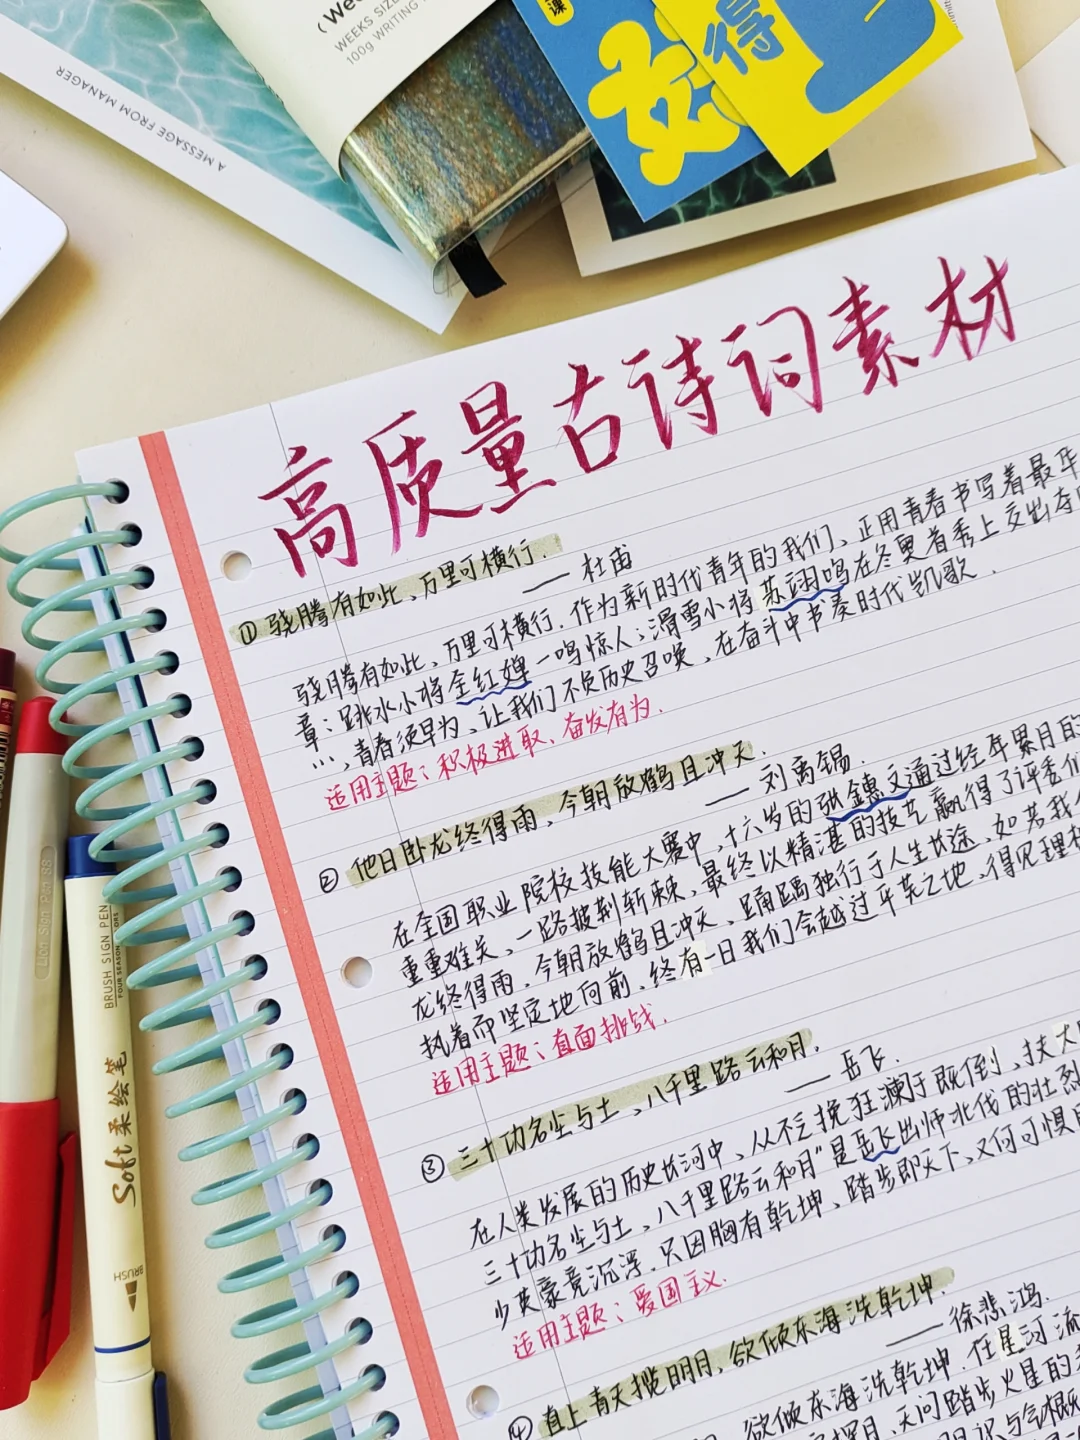 A MESSAGE FROM MANAGER
WEEKS SIZE
100g WRITING
课
好
得
高质量古诗词素材
① 骁腾有如此、万里可横行.
—— 杜甫
骁腾有如此、万里可横行. 作为新时代青年的我们、正用青春书写着最华
章:跳水小将全红婵一鸣惊人;滑雪小将苏翊鸣在冬奥首秀上交出
…,青春须早为、让我们不负历史召唤、在奋斗中书奏时代凯歌.
适用主题:积极进取、奋发有为.
② 他日卧龙终得雨、今朝放鹤且冲天.
—— 刘禹锡.
在全国职业院校技能大赛中、十六岁的张鏸文通过经年累月的
重重难关、一路披荆斩棘、最终以精湛的技艺赢得了评委们
龙终得雨.今朝放鹤且冲天、踽踽独行于人生长途、如若我们
执着而坚定地向前、终有一日我们会越过平芜之地、得见理想
适用主题:直面挑战.
③ 三十功名尘与土、八千里路云和月.
—— 岳飞.
在人类发展的历史长河中、从不乏挽狂澜于既倒、扶大
三十功名尘与土、八千里路云和月"是岳飞出师北伐的壮烈
少英豪竞沉浮.只因胸有乾坤、踏步即天下、又何可惧
适用主题:爱国主义.
④ 直上青天揽明月、欲倾东海洗乾坤.
—— 徐悲鸿.
欲倾东海洗乾坤.在星河流
探月、天问踏步火星的
Lion Sign Pen 88
BRUSH SIGN PEN
FOUR SEASON COLORS
Soft柔绘笔
BRUSH